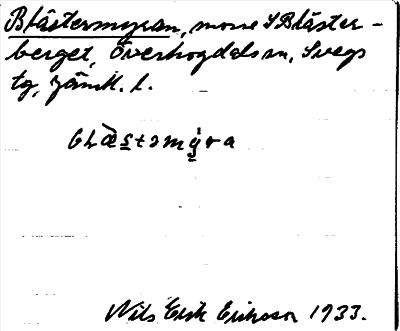 Blästermyran, mosse S Bläster-
berget, Överhogdals sn, Svegs
tg, Jämtl. l.
Nils Erik Eriksson 1933.